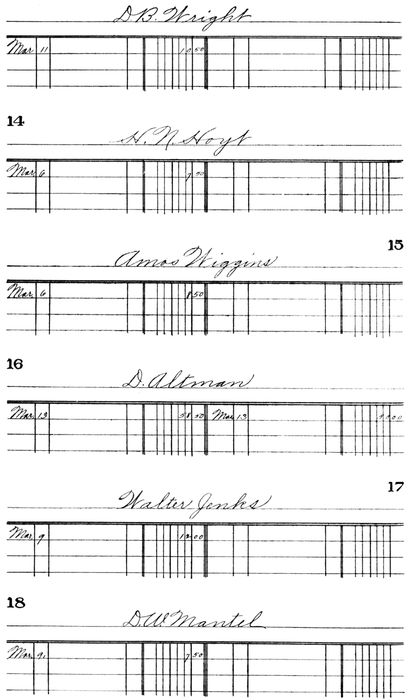 D.B. Wright
Mar 11 10 50
14
H. N. Hoyt
Mar 6 7 50
15
Amos Wiggins
Mar 6 8 50
16
D. Altman
Mar 13 Mar 13
17
Walter Jenks
Mar 9 12 00
18
D.W. Mantel
Mar 9 7 50